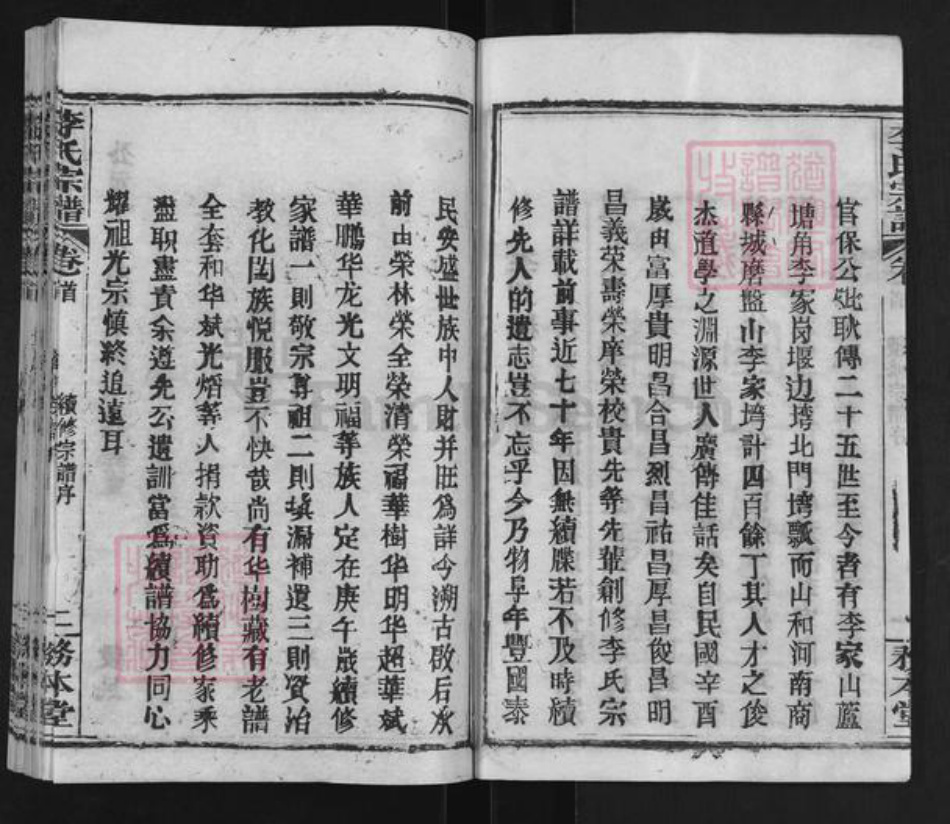 官保公処耿傳二十五世至今者有李家山藍
塘角李家岗堰边塆北門塆瓢而山和河南商
縣城磨盤山李家塆計四百餘丁其人才之俊
杰道學之淵源世人廣傳佳話矣自民國辛酉
歲由富厚貴明昌合昌烈昌祜昌厚昌俊昌明
昌義荣壽榮庠榮校貴先等先輩創修李氏宗
譜詳載前事近七十年因無續牒若不及時續
修先人的遺志豈不忘乎今乃物阜年豐國泰
民安盛世族中人財并旺爲詳今溯古啟后承
前由榮林榮全榮清榮福華樹华明华超華斌
華鵬华龙光文明福等族人定在庚午歲續修
家譜一則敬宗尊祖二則填漏補遺三則資治
教化闔族悦服豈不快哉尚有华樹藏有老譜
全套和华斌光焰等人捐款資助爲續修家乘
盡职盡責余遵先公遺訓當爲續譜協力同心
耀祖光宗慎終追遠耳
李氏宗譜
卷首
續修宗譜序
二
務本堂